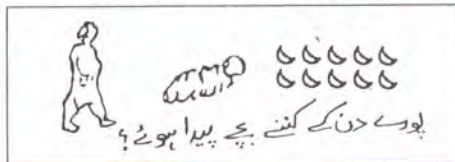 پورے دن کے کتنے بچے پیدا ہوئے؟